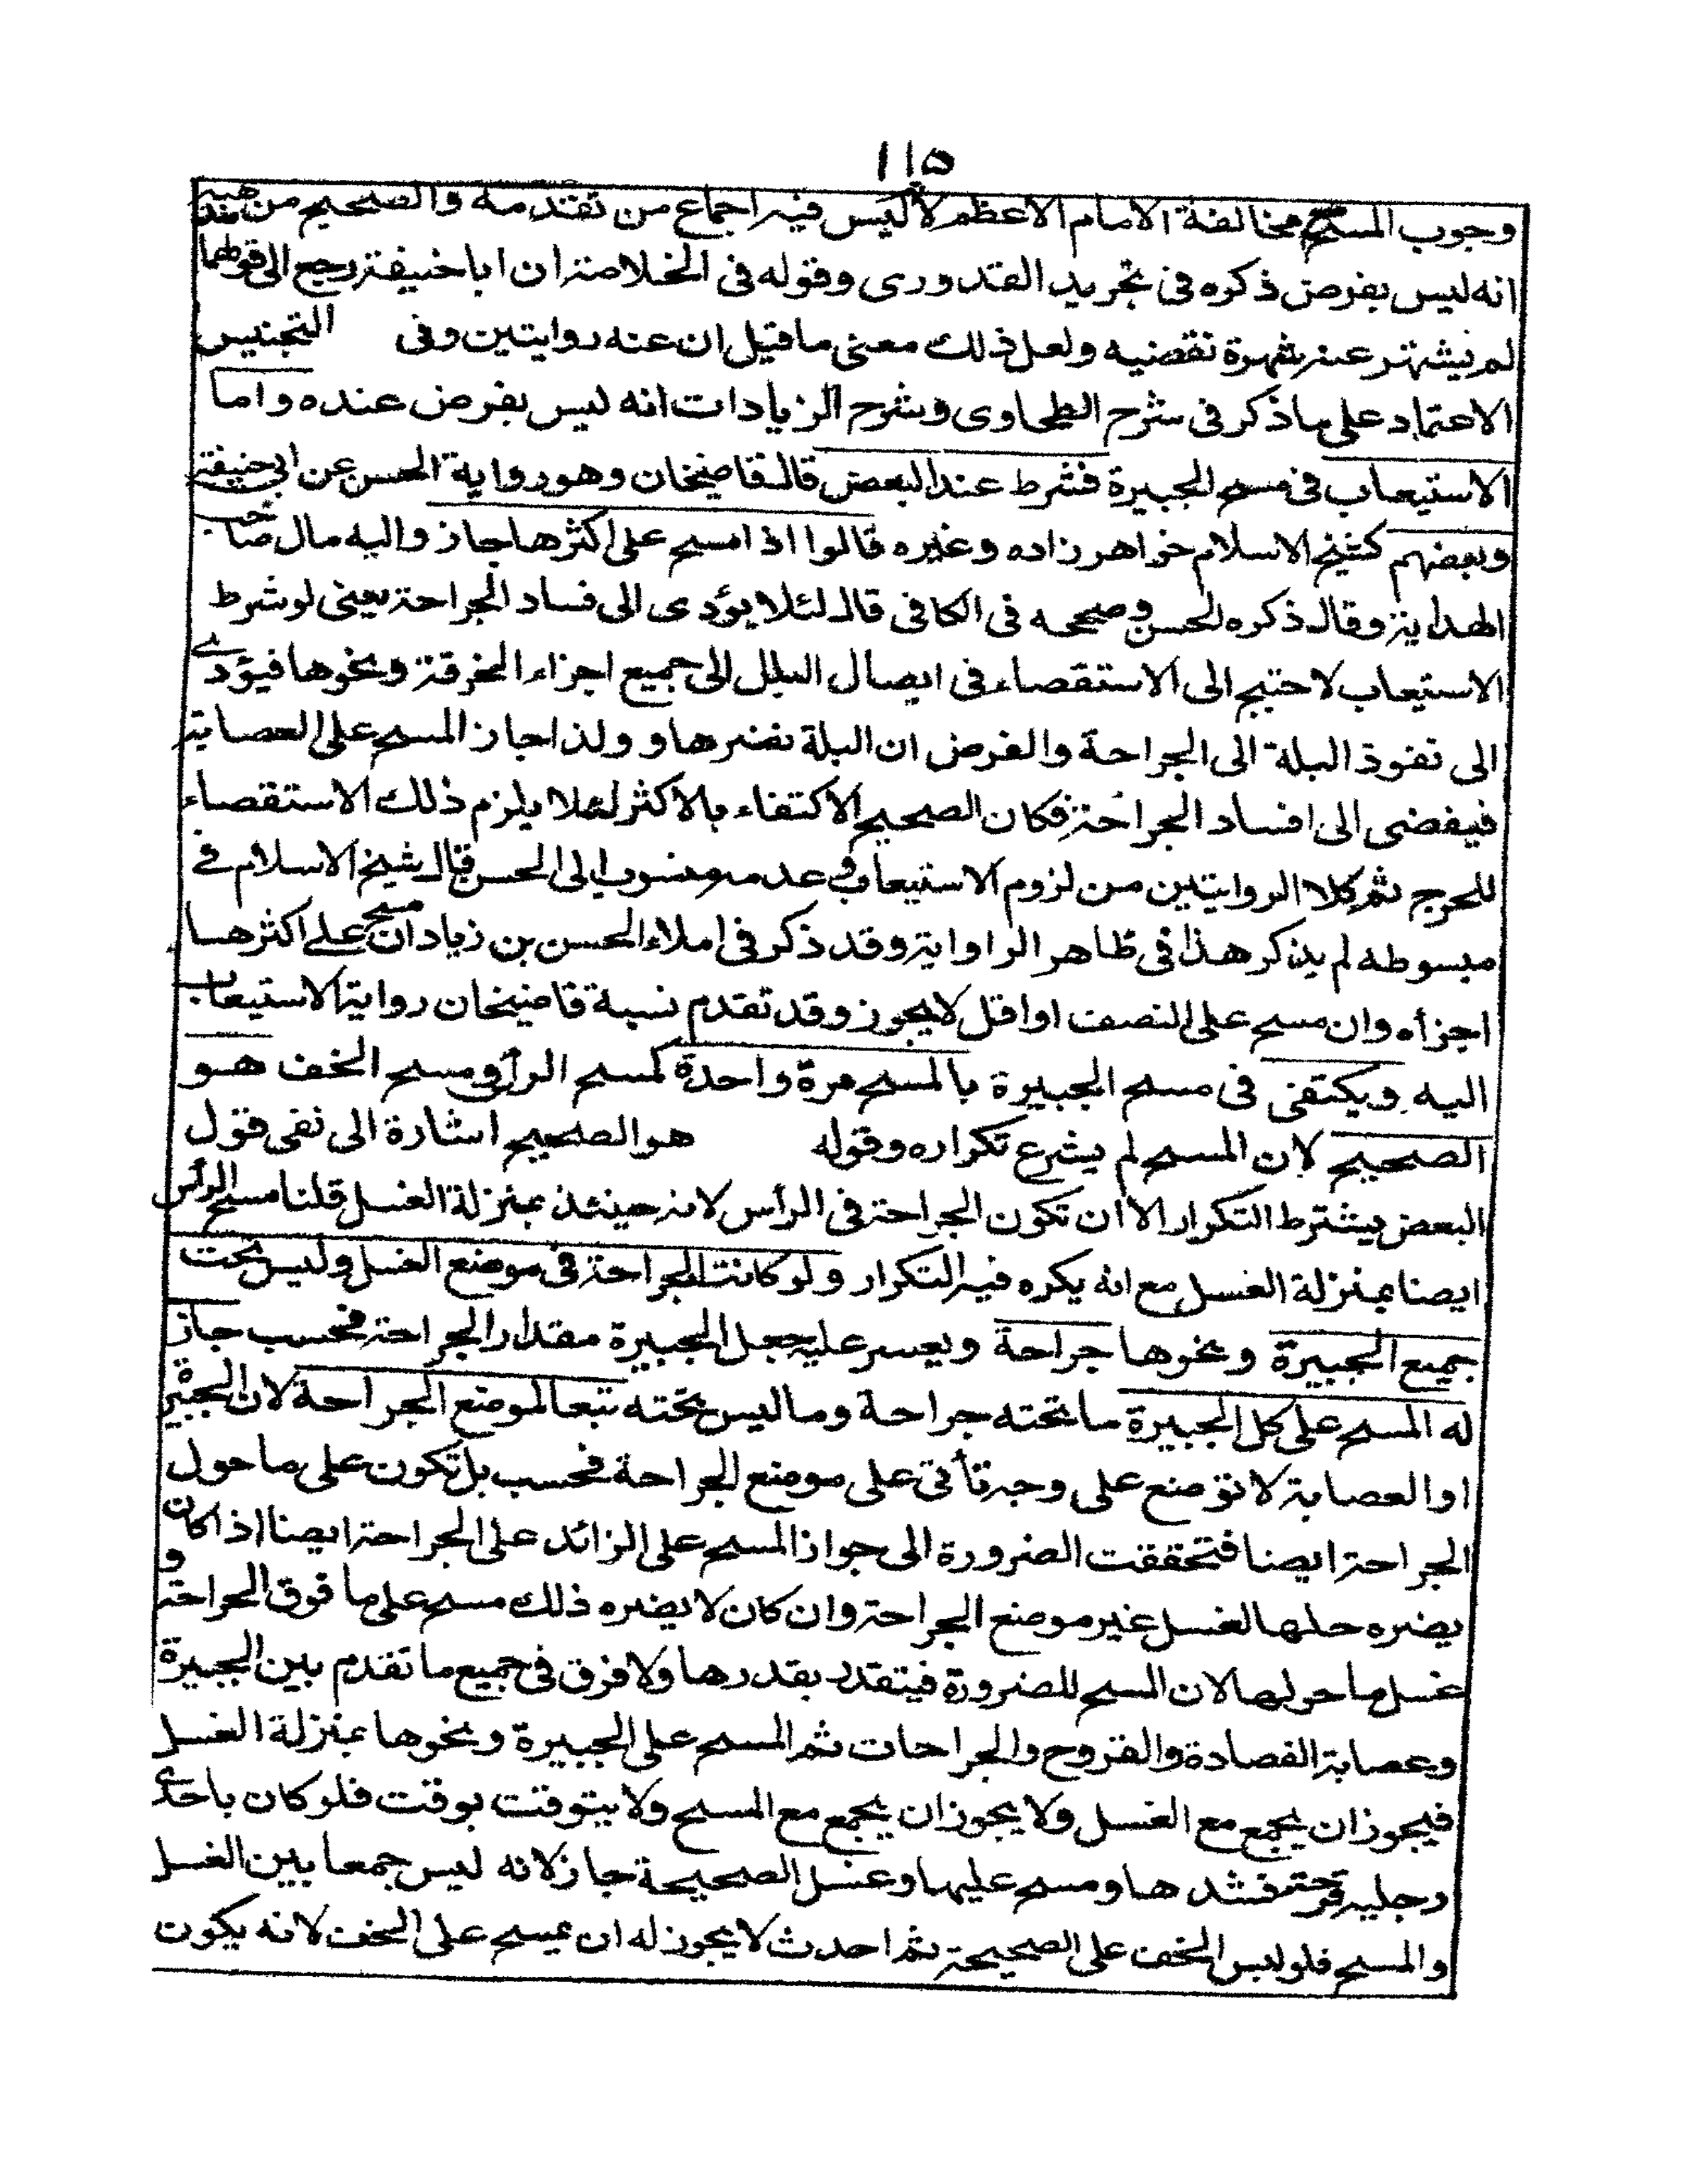 ١١٥
وجوب المسح مخالفة الامام الاعظم لا ليس فيه اجماع من تقدمه والصحيح من مذهبه
انه ليس بفرض ذكره في تجريد القدوري وقوله في الخلاصة ان ابا حنيفة رجع الى قولهما
لم يشتهر عنه شهرة نقضيه ولعل ذلك معنى ما قيل ان عنه روايتين وفى التجنيس
الاعتماد على ما ذكر فى شرح الطحاوى وشرح الزيادات انه ليس بفرض عنده واما
الاستيعاب فى مسح الجبيرة فشرط عند البعض قال قاضيخان وهو رواية الحسن عن ابى حنيفة
وبعضهم كشيخ الاسلام خواهر زاده وغيره قالوا اذا مسح على اكثرها جاز واليه مال صاحب
الهداية وقال ذكره الحسن وصححه فى الكافى قال لئلا يؤدى الى فساد الجراحة يعنى لو شرط
الاستيعاب لاحتيج الى الاستقصاء فى ايصال البلل الى جميع اجزاء الخرقة ونحوها فيؤدى
الى نفوذ البلة الى الجراحة والفرض ان البلة تضرها و ولذا جاز المسح على العصابة
فيفضى الى افساد الجراحة فكان الصحيح الاكتفاء بالاكثر لئلا يلزم ذلك الاستقصاء
للحرج ثم كلا الروايتين من لزوم الاستيعاب وعدمه منسوب الى الحسن قال شيخ الاسلام فى
مبسوطه لم يذكر هذا فى ظاهر الراواية وقد ذكر فى املاء الحسن بن زياد ان مسح على اكثرها
اجزأه وان مسح على النصف او اقل لا يجوز وقد تقدم نسبة قاضيخان رواية الاستيعاب
اليه ويكتفى فى مسح الجبيرة بالمسح مرة واحدة كمسح الرأس ومسح الخف هو
الصحيح لان المسح لم يشرع تكراره وقوله هو الصحيح اشارة الى نفى قول
البعض يشترط التكرار الا ان تكون الجراحة فى الرأس لانه حينئذ بمنزلة الغسل قلنا مسح الرأس
ايضا بمنزلة الغسل مع انه يكره فيه التكرار ولو كانت الجراحة فى موضع الغسل وليس تحت
جميع الجبيرة ونحوها جراحة ويعسر عليه جعل الجبيرة مقدار الجراحة فحسب جاز
له المسح على كل الجبيرة ما تحته جراحة وما ليس تحته تبعا لموضع الجراحة لان الجبيرة
او العصابة لا توضع على وجه تأتى على موضع الجراحة فحسب بل تكون على ما حول
الجراحة ايضا فتحققت الضرورة الى جواز المسح على الزائد على الجراحة ايضا اذا كان
يضره حلها لغسل غير موضع الجراحة وان كان لا يضره ذلك مسح على ما فوق الجراحة و
غسل ما حولها لان المسح للضرورة فيتقدر بقدرها ولا فرق فى جميع ما تقدم بين الجبيرة
وعصابة الفصادة والقروح والجراحات ثم المسح على الجبيرة ونحوها بمنزلة الغسل
فيجوز ان يجمع مع الغسل ولا يجوز ان يجمع مع المسح ولا يتوقت بوقت فلو كان باحدى
رجليه قرحة فشدها ومسح عليها وغسل الصحيحة جاز لانه ليس جمعا بين الغسل
والمسح فلو لبس الخف على الصحيحة ثم احدث لا يجوز له ان يمسح على الخف لانه يكون